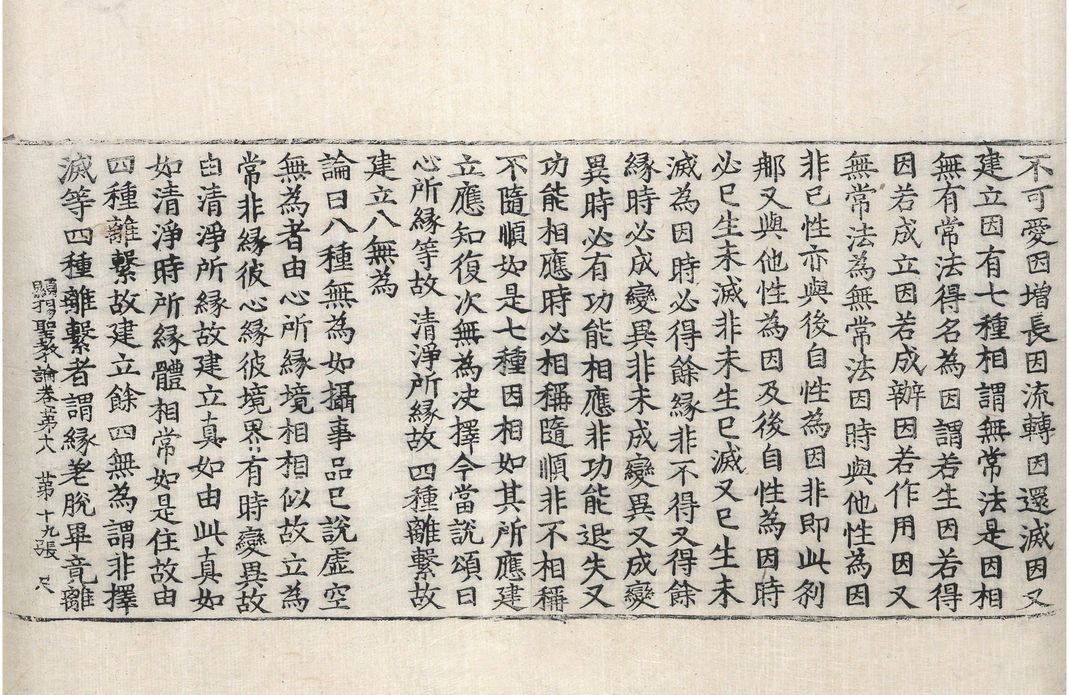 不可愛因增長因流轉因還滅因又
建立因有七種相謂無常法是因相
無有常法得名為因謂若生因若得
因若成立因若成辦因若作用因又
無常法為無常法因時與他性為因
非巳性亦與後自性為因非即此刹
那又與他性為因及後自性為因時
必巳生未滅非未生巳滅又巳生未
滅為因時必得餘緣非不得又得餘
緣時必成變異非未成變異又成變
異時必有功能相應非功能退失又
功能相應時必相稱隨順非不相稱
不隨順如是七種因相如其所應建
立應知復次無為決擇今當說頌曰
心所緣等故 清淨所緣故 四種離繫故
建立八無為
論曰八種無為如攝事品巳說虛空
無為者由心所緣境相相似故立為
常非緣彼心緣彼境界有時變異故
由清淨所緣故建立真如由此真如
如清淨時所緣體相常如是住故由
四種離繫故建立餘四無為謂非擇
滅等四種離繫者謂緣差脫畢竟離
顯揚聖教論卷第十八 第十九張 尺